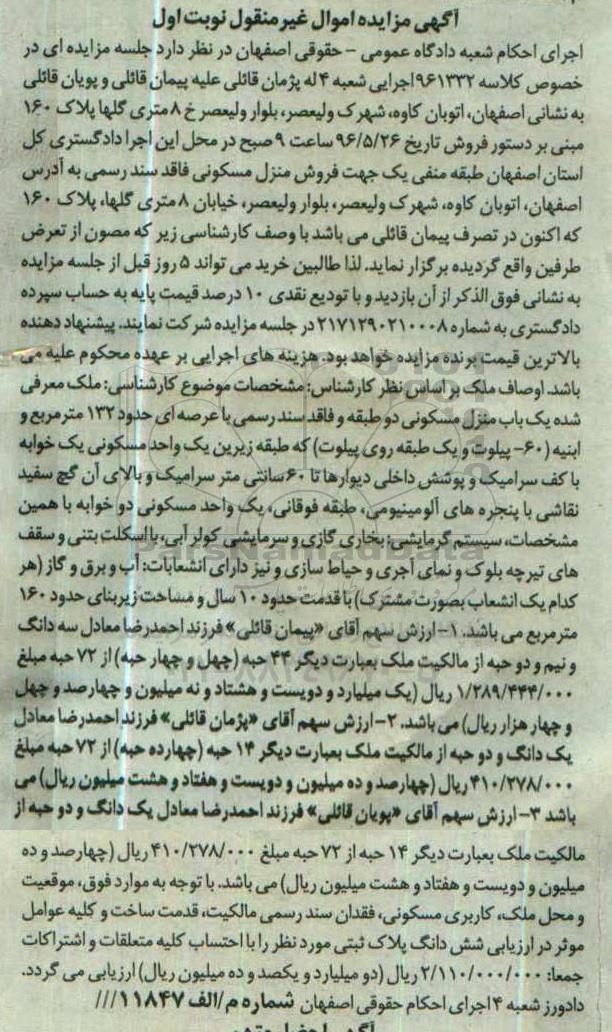 آگهی مزایده اموال غیرمنقول نوبت اول
اجرای احکام شعبه دادگاه عمومی - حقوقی اصفهان در نظر دارد جلسه مزایده ای در
خصوص کلاسه ۹۶۱۳۳۲ اجرایی شعبه ۴ له پژمان قائلی علیه پیمان قائلی و پویان قائلی
به نشانی اصفهان، اتوبان کاوه، شهرک ولیعصر، بلوار ولیعصر خ ۸ متری گلها پلاک ۱۶۰
مبنی بر دستور فروش تاریخ ۹۶/۵/۲۶ ساعت ۹ صبح در محل این اجرا دادگستری کل
استان اصفهان طبقه منفی یک جهت فروش منزل مسکونی فاقد سند رسمی به آدرس
اصفهان، اتوبان کاوه، شهرک ولیعصر، بلوار ولیعصر، خیابان ۸ متری گلها، پلاک ۱۶۰
که اکنون در تصرف پیمان قائلی می باشد با وصف کارشناسی زیر که مصون از تعرض
طرفین واقع گردیده برگزار نماید. لذا طالبین خرید می تواند ۵ روز قبل از جلسه مزایده
به نشانی فوق الذکر از آن بازدید و با تودیع نقدی ۱۰ درصد قیمت پایه به حساب سپرده
دادگستری به شماره ۲۱۷۱۲۹۰۲۱۰۰۰۸ در جلسه مزایده شرکت نمایند. پیشنهاد دهنده
بالاترین قیمت برنده مزایده خواهد بود. هزینه های اجرایی بر عهده محکوم علیه می
باشد. اوصاف ملک بر اساس نظر کارشناس: مشخصات موضوع کارشناسی: ملک معرفی
شده یک باب منزل مسکونی دو طبقه و فاقد سند رسمی با عرصه ای حدود ۱۳۲ مترمربع و
ابنیه (۶۰- پیلوت و یک طبقه روی پیلوت) که طبقه زیرین یک واحد مسکونی یک خوابه
با کف سرامیک و پوشش داخلی دیوارها تا ۶۰ سانتی متر سرامیک و بالای آن گچ سفید
نقاشی با پنجره های آلومینیومی، طبقه فوقانی، یک واحد مسکونی دو خوابه با همین
مشخصات، سیستم گرمایشی: بخاری گازی و سرمایشی کولر آبی، با اسکلت بتنی و سقف
های تیرچه بلوک و نمای آجری و حیاط سازی و نیز دارای انشعابات: آب و برق و گاز (هر
کدام یک انشعاب بصورت مشترک) با قدمت حدود ۱۰ سال و مساحت زیربنای حدود ۱۶۰
مترمربع می باشد. ۱- ارزش سهم آقای «پیمان قائلی» فرزند احمدرضا معادل سه دانگ
و نیم و دو حبه از مالکیت ملک بعبارت دیگر ۴۴ حبه (چهل و چهار حبه) از ۷۲ حبه مبلغ
۱/۲۸۹/۴۴۴/۰۰۰ ریال (یک میلیارد و دویست و هشتاد و نه میلیون و چهارصد و چهل
و چهار هزار ریال) می باشد. ۲- ارزش سهم آقای «پژمان قائلی» فرزند احمدرضا معادل
یک دانگ و دو حبه از مالکیت ملک بعبارت دیگر ۱۴ حبه (چهارده حبه) از ۷۲ حبه مبلغ
۴۱۰/۲۷۸/۰۰۰ ریال (چهارصد و ده میلیون و دویست و هفتاد و هشت میلیون ریال) می
باشد ۳- ارزش سهم آقای «پویان قائلی» فرزند احمدرضا معادل یک دانگ و دو حبه از
مالکیت ملک بعبارت دیگر ۱۴ حبه از ۷۲ حبه مبلغ ۴۱۰/۲۷۸/۰۰۰ ریال (چهارصد و ده
میلیون و دویست و هفتاد و هشت میلیون ریال) می باشد. با توجه به موارد فوق، موقعیت
و محل ملک، کاربری مسکونی، فقدان سند رسمی مالکیت، قدمت ساخت و کلیه عوامل
موثر در ارزیابی شش دانگ پلاک ثبتی مورد نظر را با احتساب کلیه متعلقات و اشتراکات
جمعا: ۲/۱۱۰/۰۰۰/۰۰۰ ریال (دو میلیارد و یکصد و ده میلیون ریال) ارزیابی می گردد.
دادورز شعبه ۴ اجرای احکام حقوقی اصفهان شماره م/الف ۱۱۸۴۷///